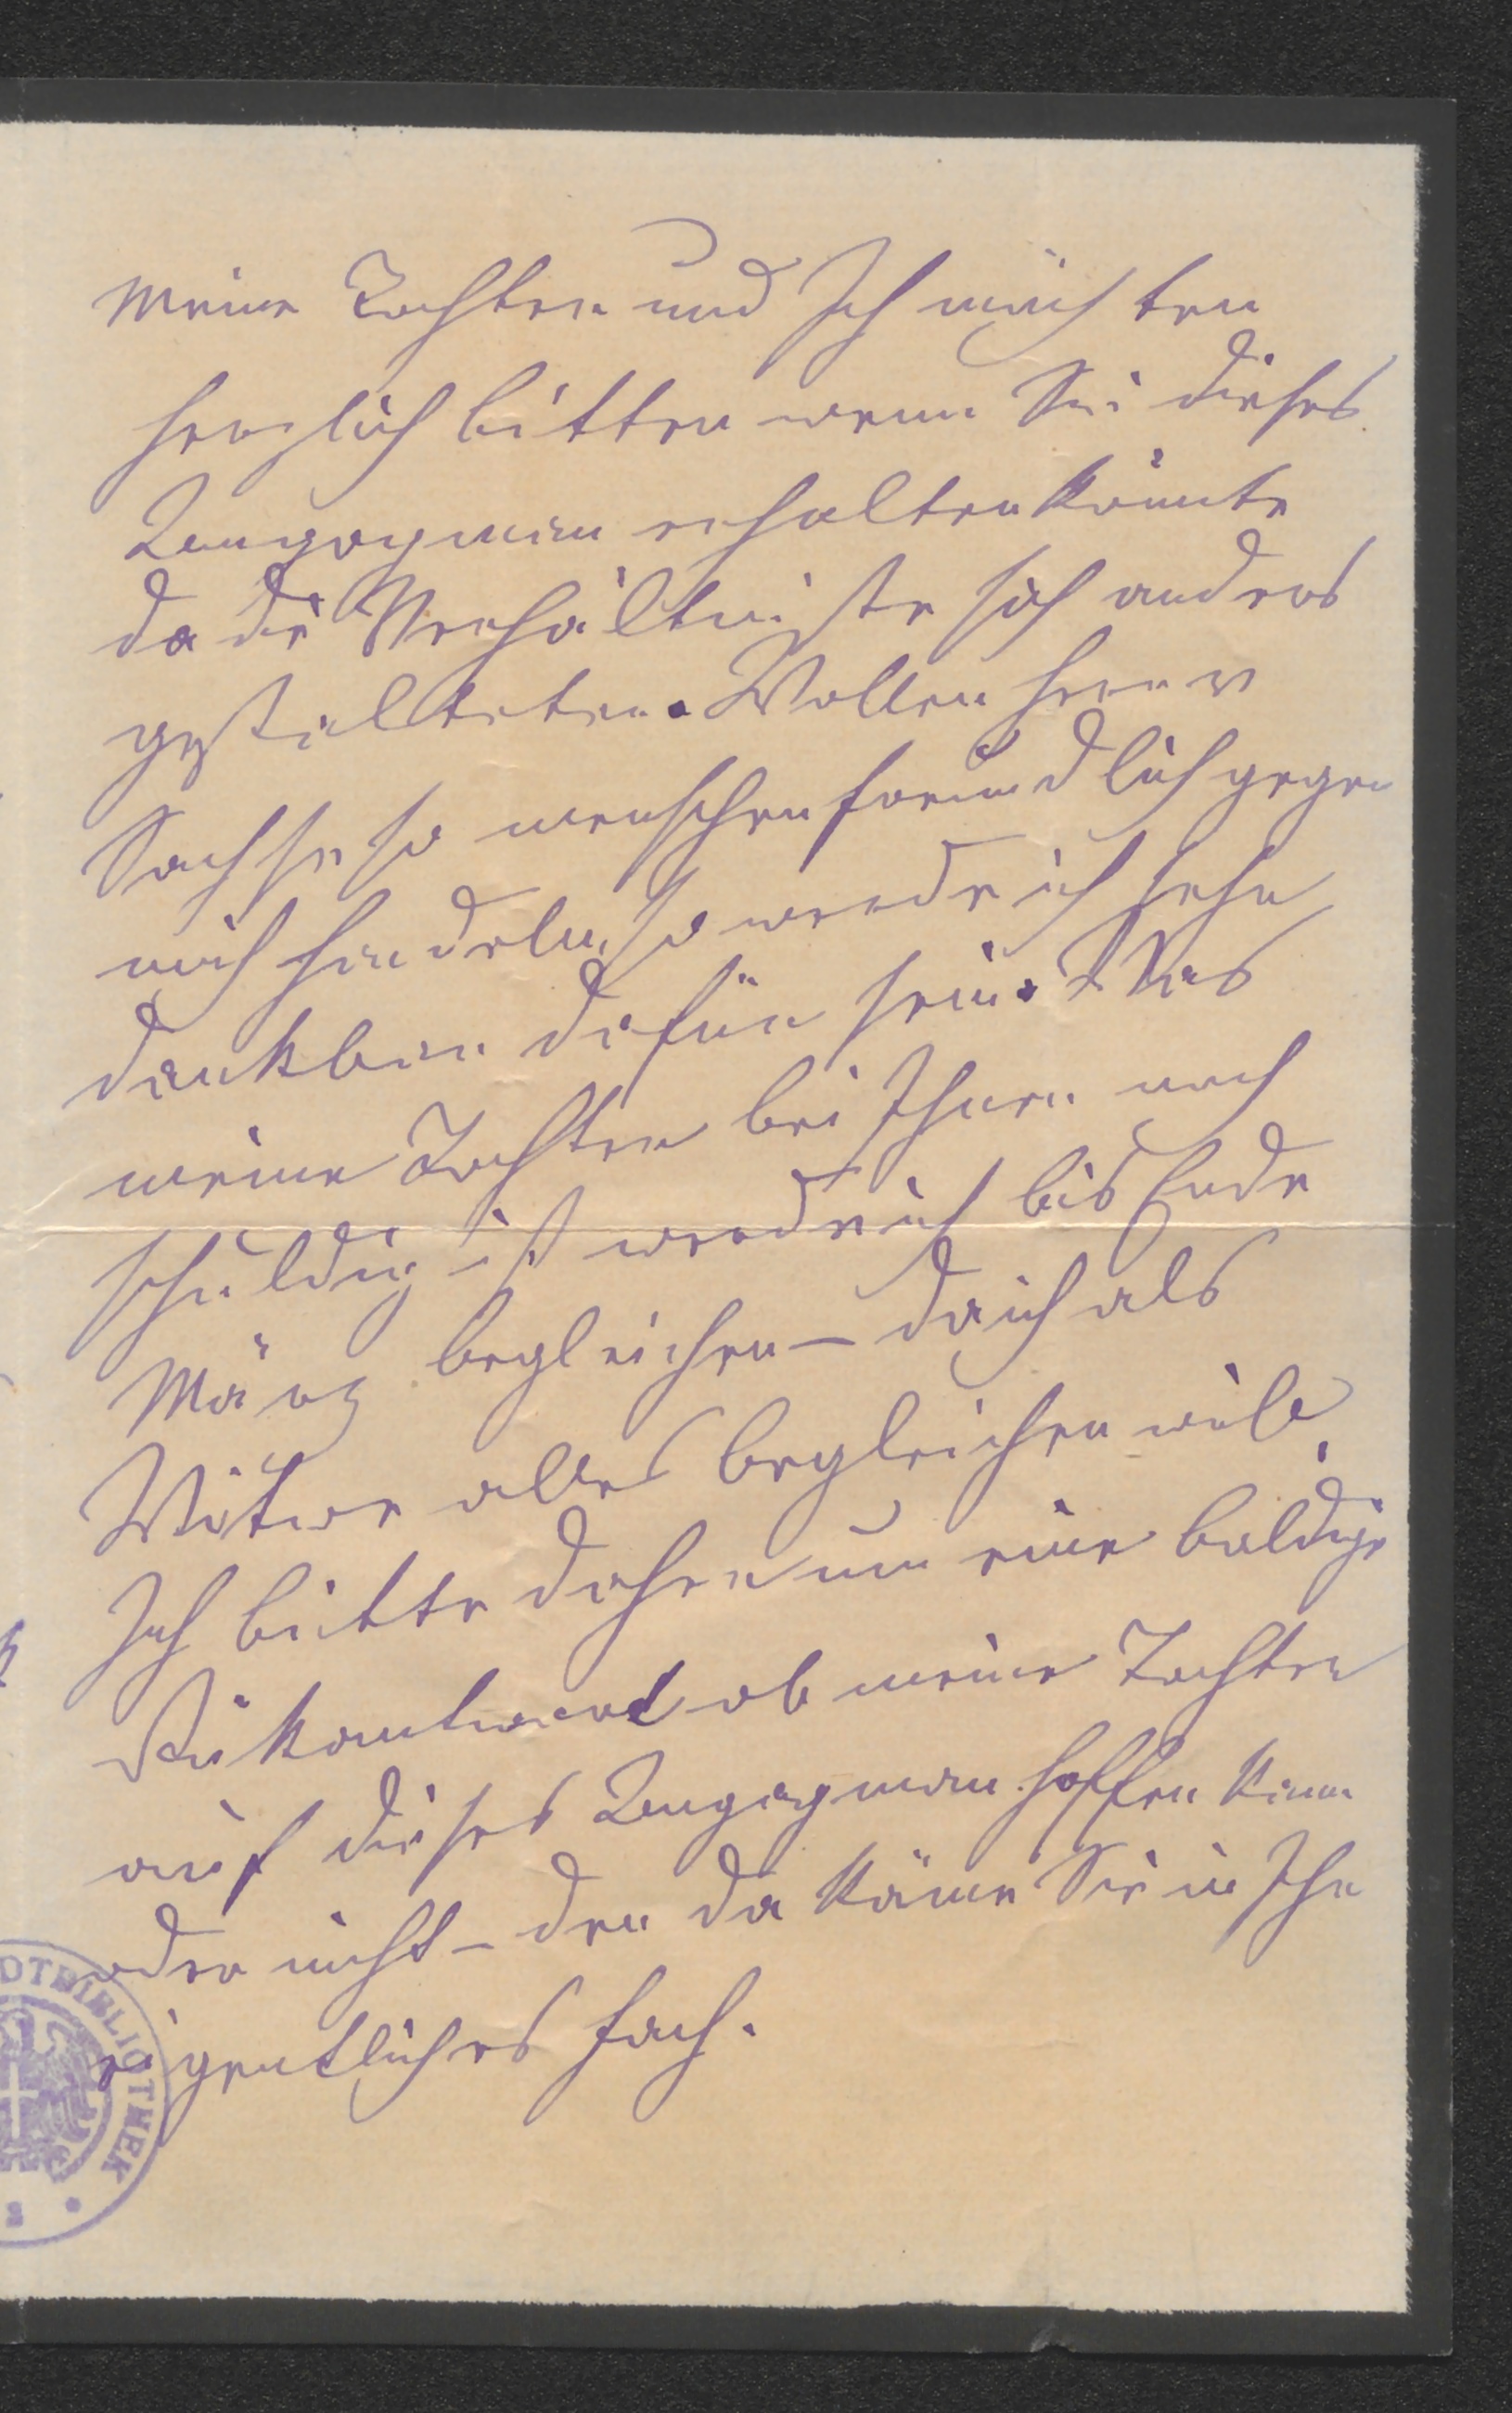 Meine Tochter und Ich möchten
herzlich bitten wenn Sie dieses
Engagemen erhalten könnte
da die Verhältniste sich anders
gestallteten. Wollen Herr
Sachse so menschenfreundlich gegen
mich handeln, so werde ich sehr
dankbar dafür sein. Was
meine Tochter bei Ihnen noch
schuldig ist werde ich bis Ende
März begleichen – da ich als
Witwe alles begleichen will
Ich bitte daher um eine baldige
Rükantword ob meine Tochter
auf dieses Engagemen hoffen kann
oder nicht – den da käme Sie in Ihr
eigentliches Fach.
DTBIBLIOTHEK